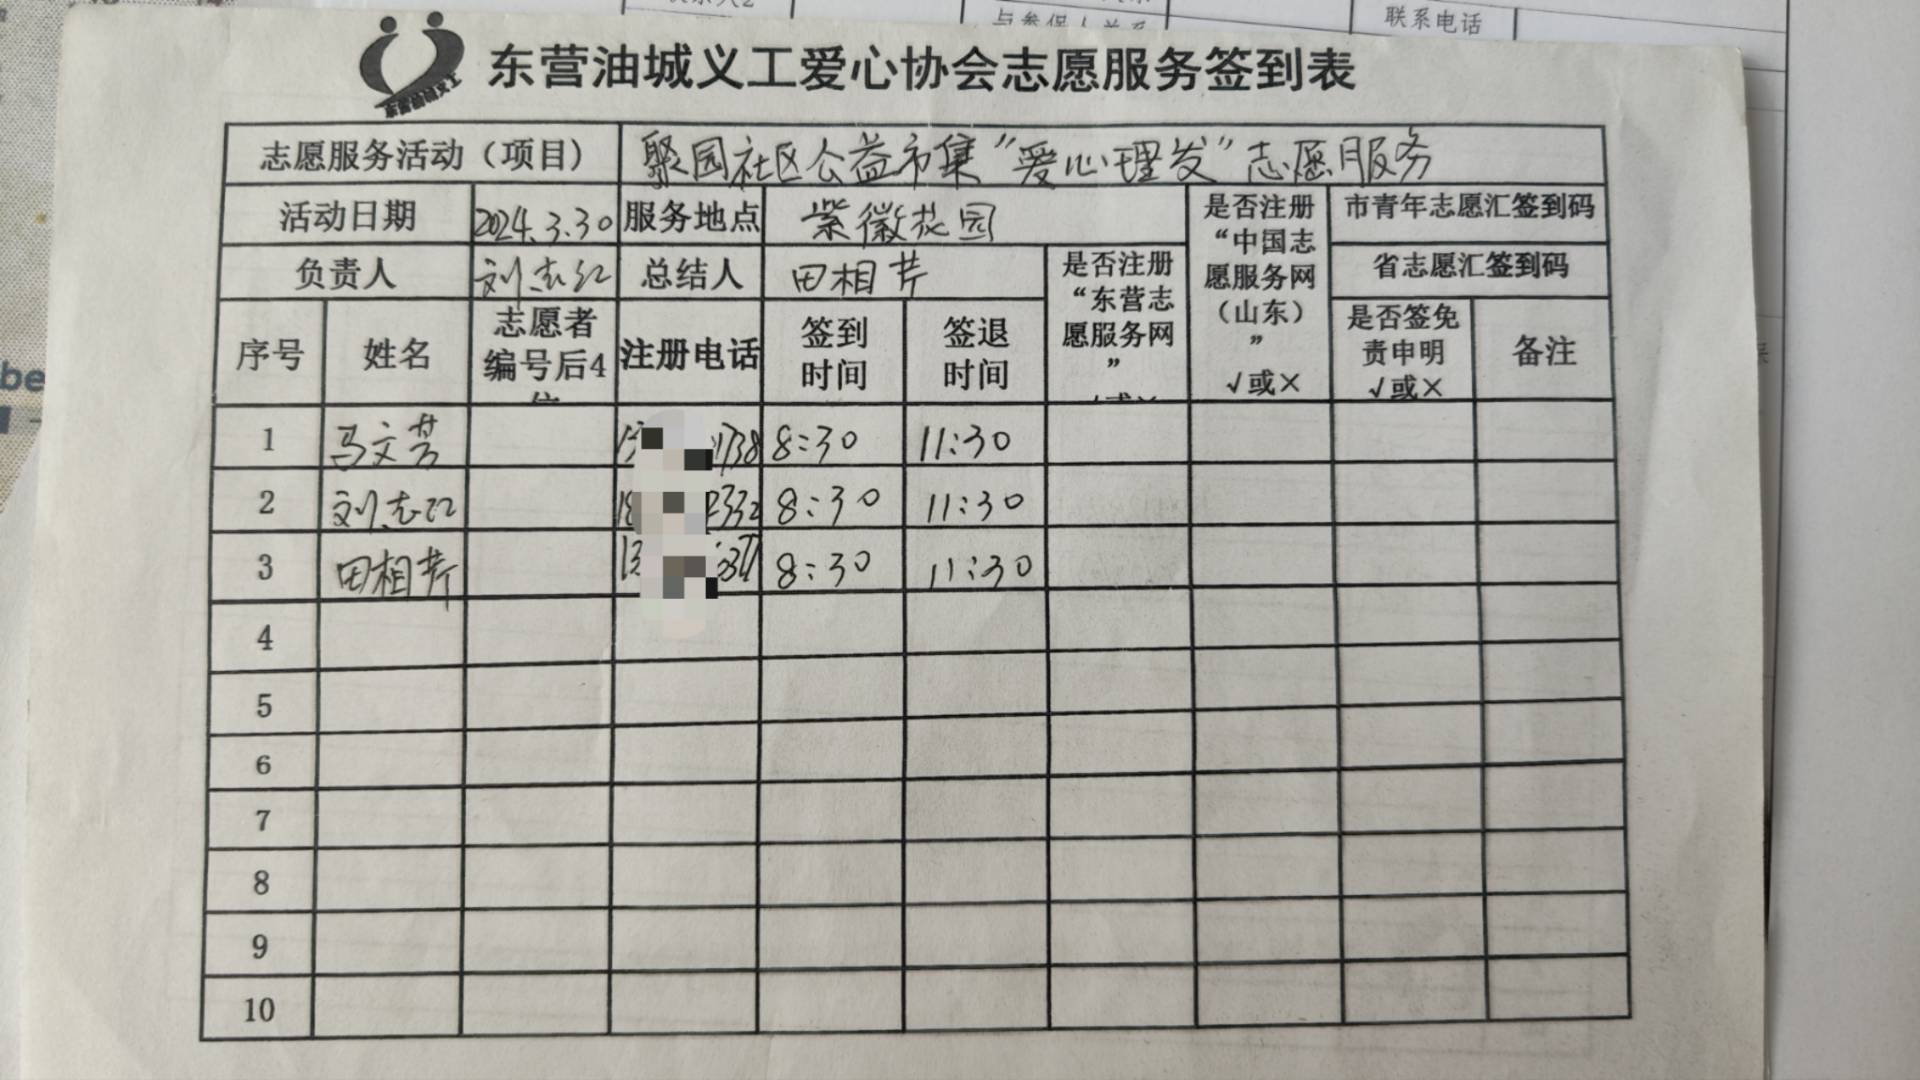 联系电话
东营油城义工
东营油城义工爱心协会志愿服务签到表
志愿服务活动（项目） 聚园社区公益市集“爱心理发”志愿服务
活动日期 2024.3.30 服务地点 紫薇花园 是否注册“中国志愿服务网（山东）” √或× 市青年志愿汇签到码
负责人 刘志红 总结人 田相芹 是否注册“东营志愿服务网” 省志愿汇签到码
序号 姓名 志愿者编号后4 注册电话 签到时间 签退时间 是否签免责申明 √或× 备注
1 马文芳 8:30 11:30
2 刘志红 8:30 11:30
3 田相芹 8:30 11:30
4
5
6
7
8
9
10